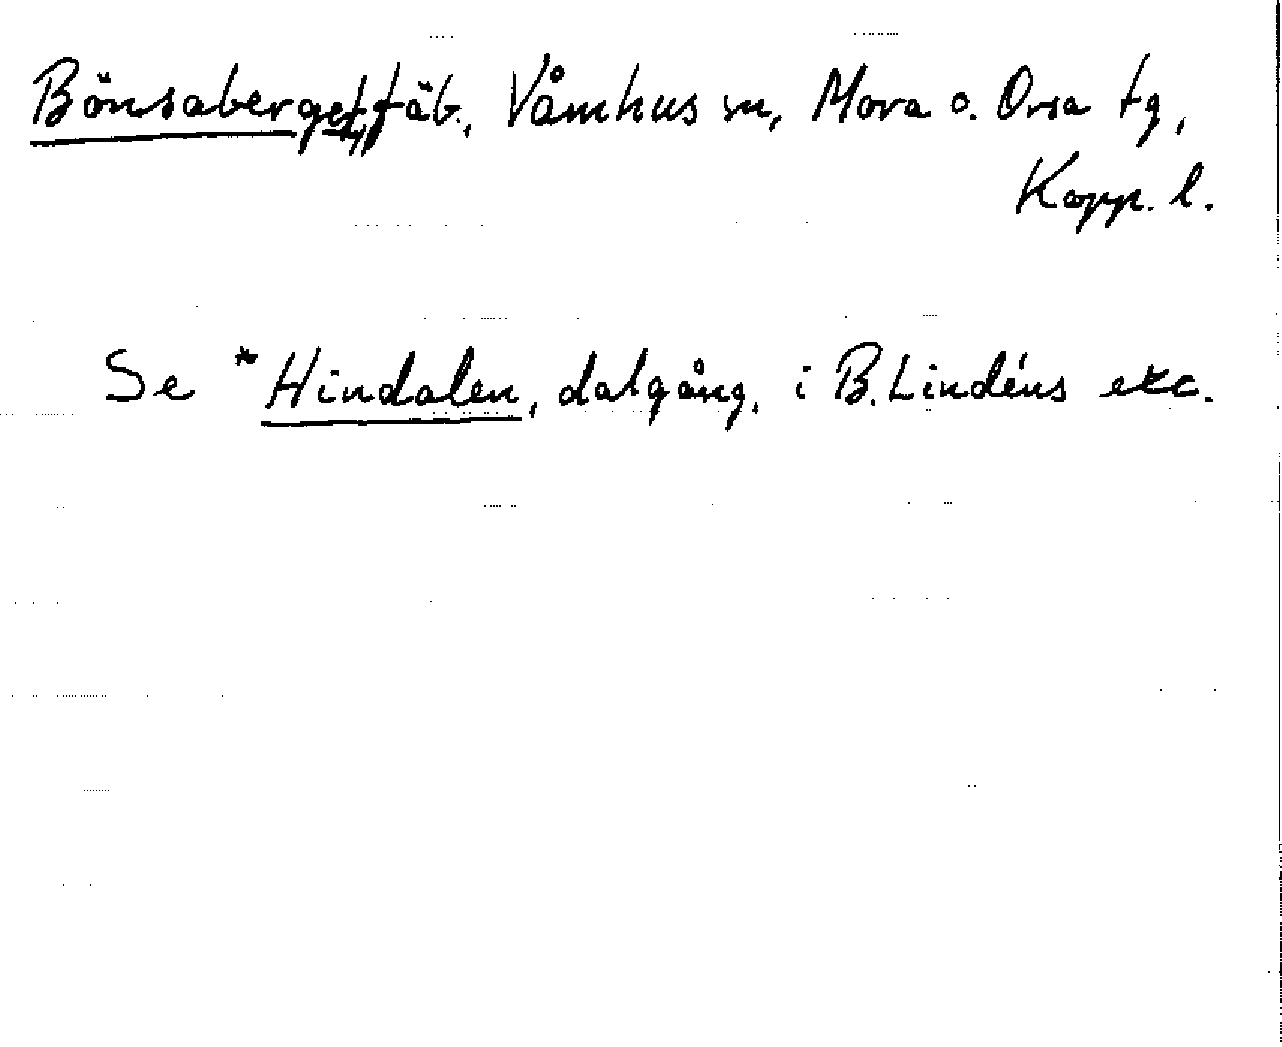 Bönsaberget, fäb., Våmhus sn, Mora o. Orsa tg,
Kopp. l.
Se *Hindalen, dalgång, i B. Lindéns exc.